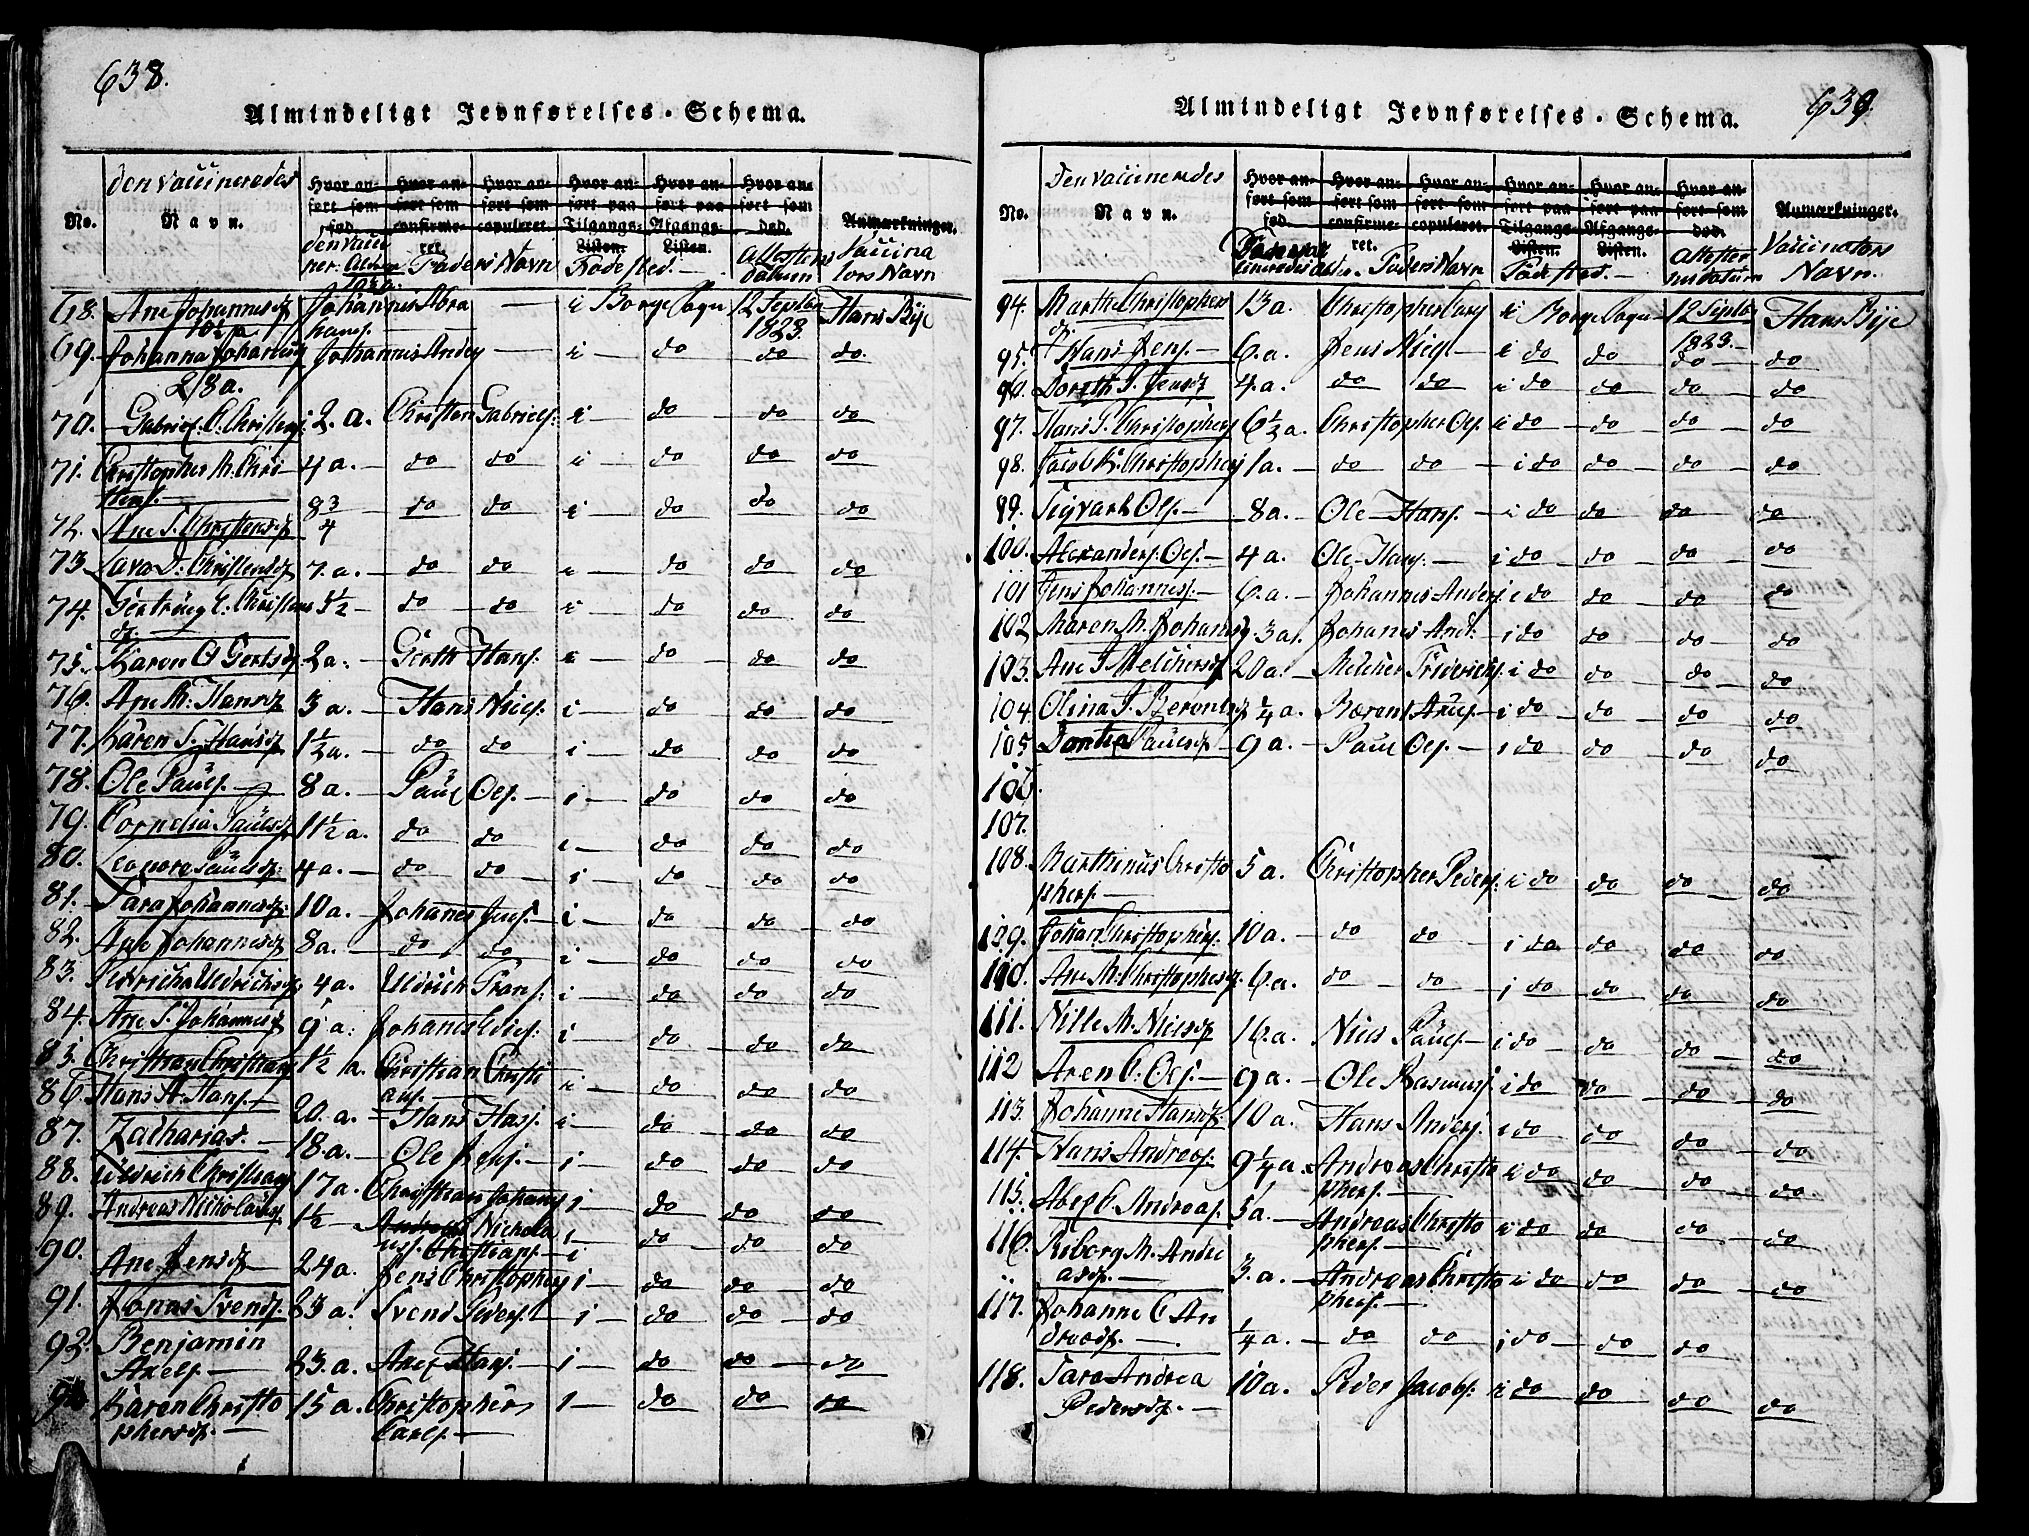 638.
Almindeligt Jevnførelses-Schema.
den Vaccineredes
No. Navn. Hvor anført som fød. Hvor anført som confirmeret. Hvor anført som copuleret. Hvor anført paa Tilgangs-Listen. Hvor anført paa Afgangs-Listen. Hvor anført som død. Anmærkninger.
Faders Navn Fødested. Attestens datum Vaccinators Navn
68. Ane Johannesd Johannis Abra — i Borge Sogn 12 Septbr Hans Bye
hams. 1823.
69. Johanna Johannisd Johannis Anders i — do do do
2/3 a.
70. Gabriel C. Christens: 2. a. Christen Gabriels: i — do do do
71. Christopher M. Chri 4 a. — do do i — do do do
stens. —
72. Ane S. Christensd 8 3/4 do do i — do do do
73. Lava D: Christensd 7. a. — do do i — do do do
74. Gertrug E. Christens 5½ — do do i — do do do
dz. —
75. Karen O Gertsd 2 a. — Gerth Hans. i — do do do
76. Ane M. Hansd 3 a. — Hans Niels. i — do do do
77. Karen S. Hansd 1½ a. — do do i — do do do
78. Ole Pauls. — 8 a. — Paul Ols. — i — do do do
79. Cornelia Paulsd 1½ a. do do i — do do do
80. Leonore Paulsd: 4 a. — do do i — do do do
81. Sara Johannesd: 10 a. Johanes Jens. — i — do do do
82. Ane Johannesd 8 a. — do do i — do do do
83. Uldricha Uldrichsd. 4 a. Uldrich Frans: i — do do do
84. Ane S. Johannesd 9 a: Johanes Niels: i — do do do
85. Christian Christians 1½ a. Christian Christi i — do do do
ans. —
86. Hans A. Hans. — 20. a. — Hans Hans. i — do do do
87. Zacharias. — 18 a. — Ole Jens. — i — do do do
88. Uldrich Christians 17 a. Christian Johans i — do do do
89. Andreas Nicholais 1½ — Andreas Nichola i — do do do
us. Christians — i
90. Ane Jensd — 24 a. Jens Christophers i — do do do
91. Jonas Svends. 23 a. Svend Peders. i — do do do
92. Benjamin
Axels. — 23. a. Axel Hans. — i — do do do
93 Karen Christo 15 a. Christopher i — do do do
phersd. — Carls. —
639.
Almindeligt Jevnførelses-Schema.
Den Vaccineredes
No. Navn. Hvor anført som fød. Hvor anført som confirmeret. Hvor anført som copuleret. Hvor anført paa Tilgangs-Listen. Hvor anført paa Afgangs-Listen. Hvor anført som død. Anmærkninger.
Faders Navn Fødested. — Vaccinators Navn.
94. Marthe Christophers 13 a. Christopher Carls i Borge Sogn 12 Septbr Hans Bye
dz. 1823. —
95. Hans Jens. — 6. a. Jens Niels — i do do do do
96. Doroth S. Jensd 4. a. do do i do do do do
97. Hans P. Christophers 6½ a. Christopher Ols. i do do do do
98. Jacob K. Christophers 1 a. — do do — i do do do do
99. Sigvart Ols. — 8 a. — Ole Hans. — i do do do do
100. Alexanders. Ols. — 4 a. Ole Hans. — i do do do do
101 Jens Johannes. — 6. a. — Johannes Anders. i do do do do
102 Maren M. Johansd 3 a. Johanes And. — i do do do do
103. Ane J. Melchersd 20 a. — Melcher Friderichs. i do do do do
104. Olina J. Berentsd ¼ a. — Bærent Arns. — i do do do do
105 Dorthea Paulsd — 9 a. — Paul Ols. — i do do do do
106.
107.
108. Marthinus Christo 5 a. Christopher Peders. i do do do do
phers. —
109. Johan Christophers. 10 a. — do do i do do do do
110. Ane M. Christophersd. 6. a. — do do i do do do do
111. Nille M. Nielsd 16. a. Niels Pauls. — i do do do do
112 Aren C. Ols. — 9 a. — Ole Rasmus. i do do do do
113. Johanne Hansd. 10 a. Hans Anders. i do do do do
114. Hans Andreas: 9¼ a. Andreas Christo i do do do do
phers. —
115. Abel C. Andreas. 5 a. — Andreas Christo i do do do do
phers. —
116. Reborg M. Andre
asd. — 3. a. — Andreas Christo i do do do do
phers. —
117. Johanne C An
dreasd. — ¼ a. — do do i do do do
118. Sara Andrea 10 a. Peder Jacobs. i do do do do
Pedersd. —